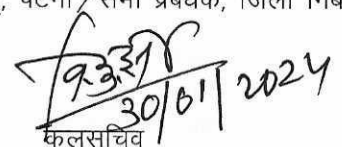 पटना / सभी प्रबंधक, जिला निब
30/01/2024
कुलसचिव